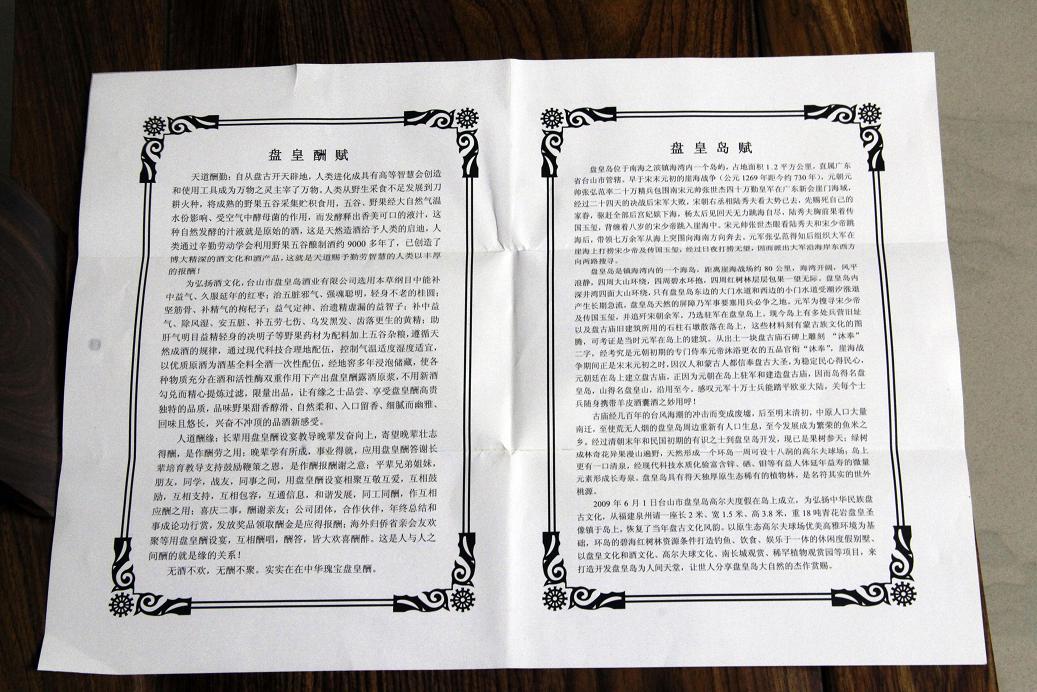 盘皇酬赋
天道酬勤：自从盘古开天辟地，人类进化成具有高等智慧会创造
和使用工具成为万物之灵主宰了万物，人类从野生采食不足发展到刀
耕火种，将成熟的野果五谷采集贮积食用，五谷、野果经大自然气温
水份影响、受空气中酵母菌的作用，而发酵释出香美可口的液汁，这
种自然发酵的汁液就是原始的酒，这是天然造酒给予人类的启迪，人
类通过辛勤劳动学会利用野果五谷酿制酒约 9000 多年了，已创造了
博大精深的酒文化和酒产品，这就是天道赐予勤劳智慧的人类以丰厚
的报酬！
为弘扬酒文化，台山市盘皇岛酒业有限公司选用本草纲目中能补
中益气、久服延年的红枣；治五脏邪气，强魂聪明，轻身不老的桂圆；
坚筋骨、补精气的枸杞子；益气定神、治遗精虚漏的益智子；补中益
气、除风湿、安五脏、补五劳七伤、乌发黑发、齿落更生的黄精；助
肝气明目益精轻身的决明子等野果药材为配料加上五谷杂粮，遵循天
然成酒的规律，通过现代科技合理地配伍，控制气温适度湿度适宜，
以优质原酒为酒基全料全酒一次性配伍，经地窖多年浸泡储藏，使各
种物质充分在酒和活性酶双重作用下产出盘皇酬露酒原浆，不用新酒
勾兑而精心提炼过滤，限量出品，让有缘之士品尝、享受盘皇酬高贵
独特的品质，品味野果甜香醇滑、自然柔和、入口留香、细腻而幽雅、
回味且悠长，兴奋不冲顶的品酒新感受。
人道酬缘：长辈用盘皇酬设宴教导晚辈发奋向上，寄望晚辈壮志
得酬，是作酬劳之用；晚辈学有所成，事业得就，应用盘皇酬答谢长
辈培育教导支持鼓励鞭策之恩，是作报酬酬谢之意；平辈兄弟姐妹，
朋友，同学，战友，同事之间，用盘皇酬设宴相聚互敬互爱，互相鼓
励，互相支持，互相包容，互通信息，和谐发展，同工同酬，作互相
应酬之用；喜庆二事，酬谢亲友；公司团体，合作伙伴，年终总结和
事成论功行赏，发放奖品领取酬金是应得报酬；海外归侨省亲会友欢
聚等用盘皇酬设宴，互相酬唱，酬答，皆大欢喜酬酢。这是人与人之
间酬的就是缘的关系！
无酒不欢，无酬不聚。实实在在中华瑰宝盘皇酬。
盘皇岛赋
盘皇岛位于南海之滨镇海湾内一个岛屿，占地面积 1.2 平方公里，直属广东
省台山市管辖。早于宋末元初的崖海战争（公元 1269 年距今约 730 年），元朝元
帅张弘范率二十万精兵包围南宋元帅张世杰四十万勤皇军在广东新会崖门海域，
经过二十四天的决战后宋军大败，宋朝右丞相陆秀夫看大势已去，先赐死自己的
家眷，驱赶全部后宫妃嫔下海，杨太后见回天无力跳海自尽，陆秀夫胸前果着传
国玉玺，背缠着八岁的宋少帝跳入崖海中。宋元帅张世杰眼看陆秀夫和宋少帝跳
海后，带领七万余军从海上突围向海南方向奔去。元军张弘范得知后组织大军在
崖海上打捞宋少帝及传国玉玺，经过日夜打捞无望，因而派出大军沿海岸东西方
向两路搜寻。
盘皇岛是镇海湾内的一个海岛，距离崖海战场约 80 公里，海湾开阔，风平
浪静，四周大山环绕，四周碧水环抱，四周红树林层层包果一望无际。盘皇岛内
深井湾四面大山环绕，只有盘皇岛东边的大门水道和西边的小门水道受潮汐涨退
产生长期急流，盘皇岛天然的屏障乃军事要塞用兵必争之地。元军为搜寻宋少帝
及传国玉玺，并追歼宋朝余军，乃选驻军在盘皇岛上，现今岛上有多处兵营旧址
以及盘古庙旧建筑所用的石柱石墩散落在岛上，这些材料刻有蒙古族文化的图
腾，可考证是当时元军在岛上的建筑。从出土一块盘古庙石碑上雕刻 “沐奉”
二字，经考究是元朝初期的专门侍奉元帝沐浴更衣的五品官衔“沐奉”，崖海战
争期间正是宋末元初之时，因汉人和蒙古人都信奉盘古大圣，为稳定民心得民心，
元朝廷在岛上建立盘古庙，正因为元朝在岛上驻军和建造盘古庙，因而岛得名盘
皇岛，山得名盘皇山，沿用至今。感叹元军十万士兵能踏平欧亚大陆，关每个士
兵随身携带羊皮酒囊酒之妙用呼！
古庙经几百年的台风海潮的冲击而变成废墟，后至明末清初，中原人口大量
南迁，至使荒无人烟的盘皇岛周边重新有人口生息，至今发展成为繁荣的鱼米之
乡。经过清朝末年和民国初期的有识之士到盘皇岛开发，现已是果树参天；绿树
成林奇花异果漫山遍野，天然形成一个环岛一周可设十八洞的高尔夫球场；岛上
更有一口清泉，经现代科技水质化验富含锌、硒、钼等有益人体延年益寿的微量
元素形成长寿泉。盘皇岛具有得天独厚原生态稀有的植物林，是名符其实的世外
桃源。
2009 年 6 月 1 日台山市盘皇岛高尔夫度假在岛上成立，为弘扬中华民族盘
古文化，从福建泉州请一座长 2 米、宽 1.5 米、高 3.8 米，重 18 吨青花岩盘皇圣
像镇于岛上，恢复了当年盘古文化风韵。以原生态高尔夫球场优美高雅环境为基
础，环岛的碧海红树林资源条件打造钓鱼、饮食、娱乐于一体的休闲度假别墅、
以盘皇文化和酒文化、高尔夫球文化、南长城观赏、稀罕植物观赏园等项目，来
打造开发盘皇岛为人间天堂，让世人分享盘皇岛大自然的杰作赏赐。